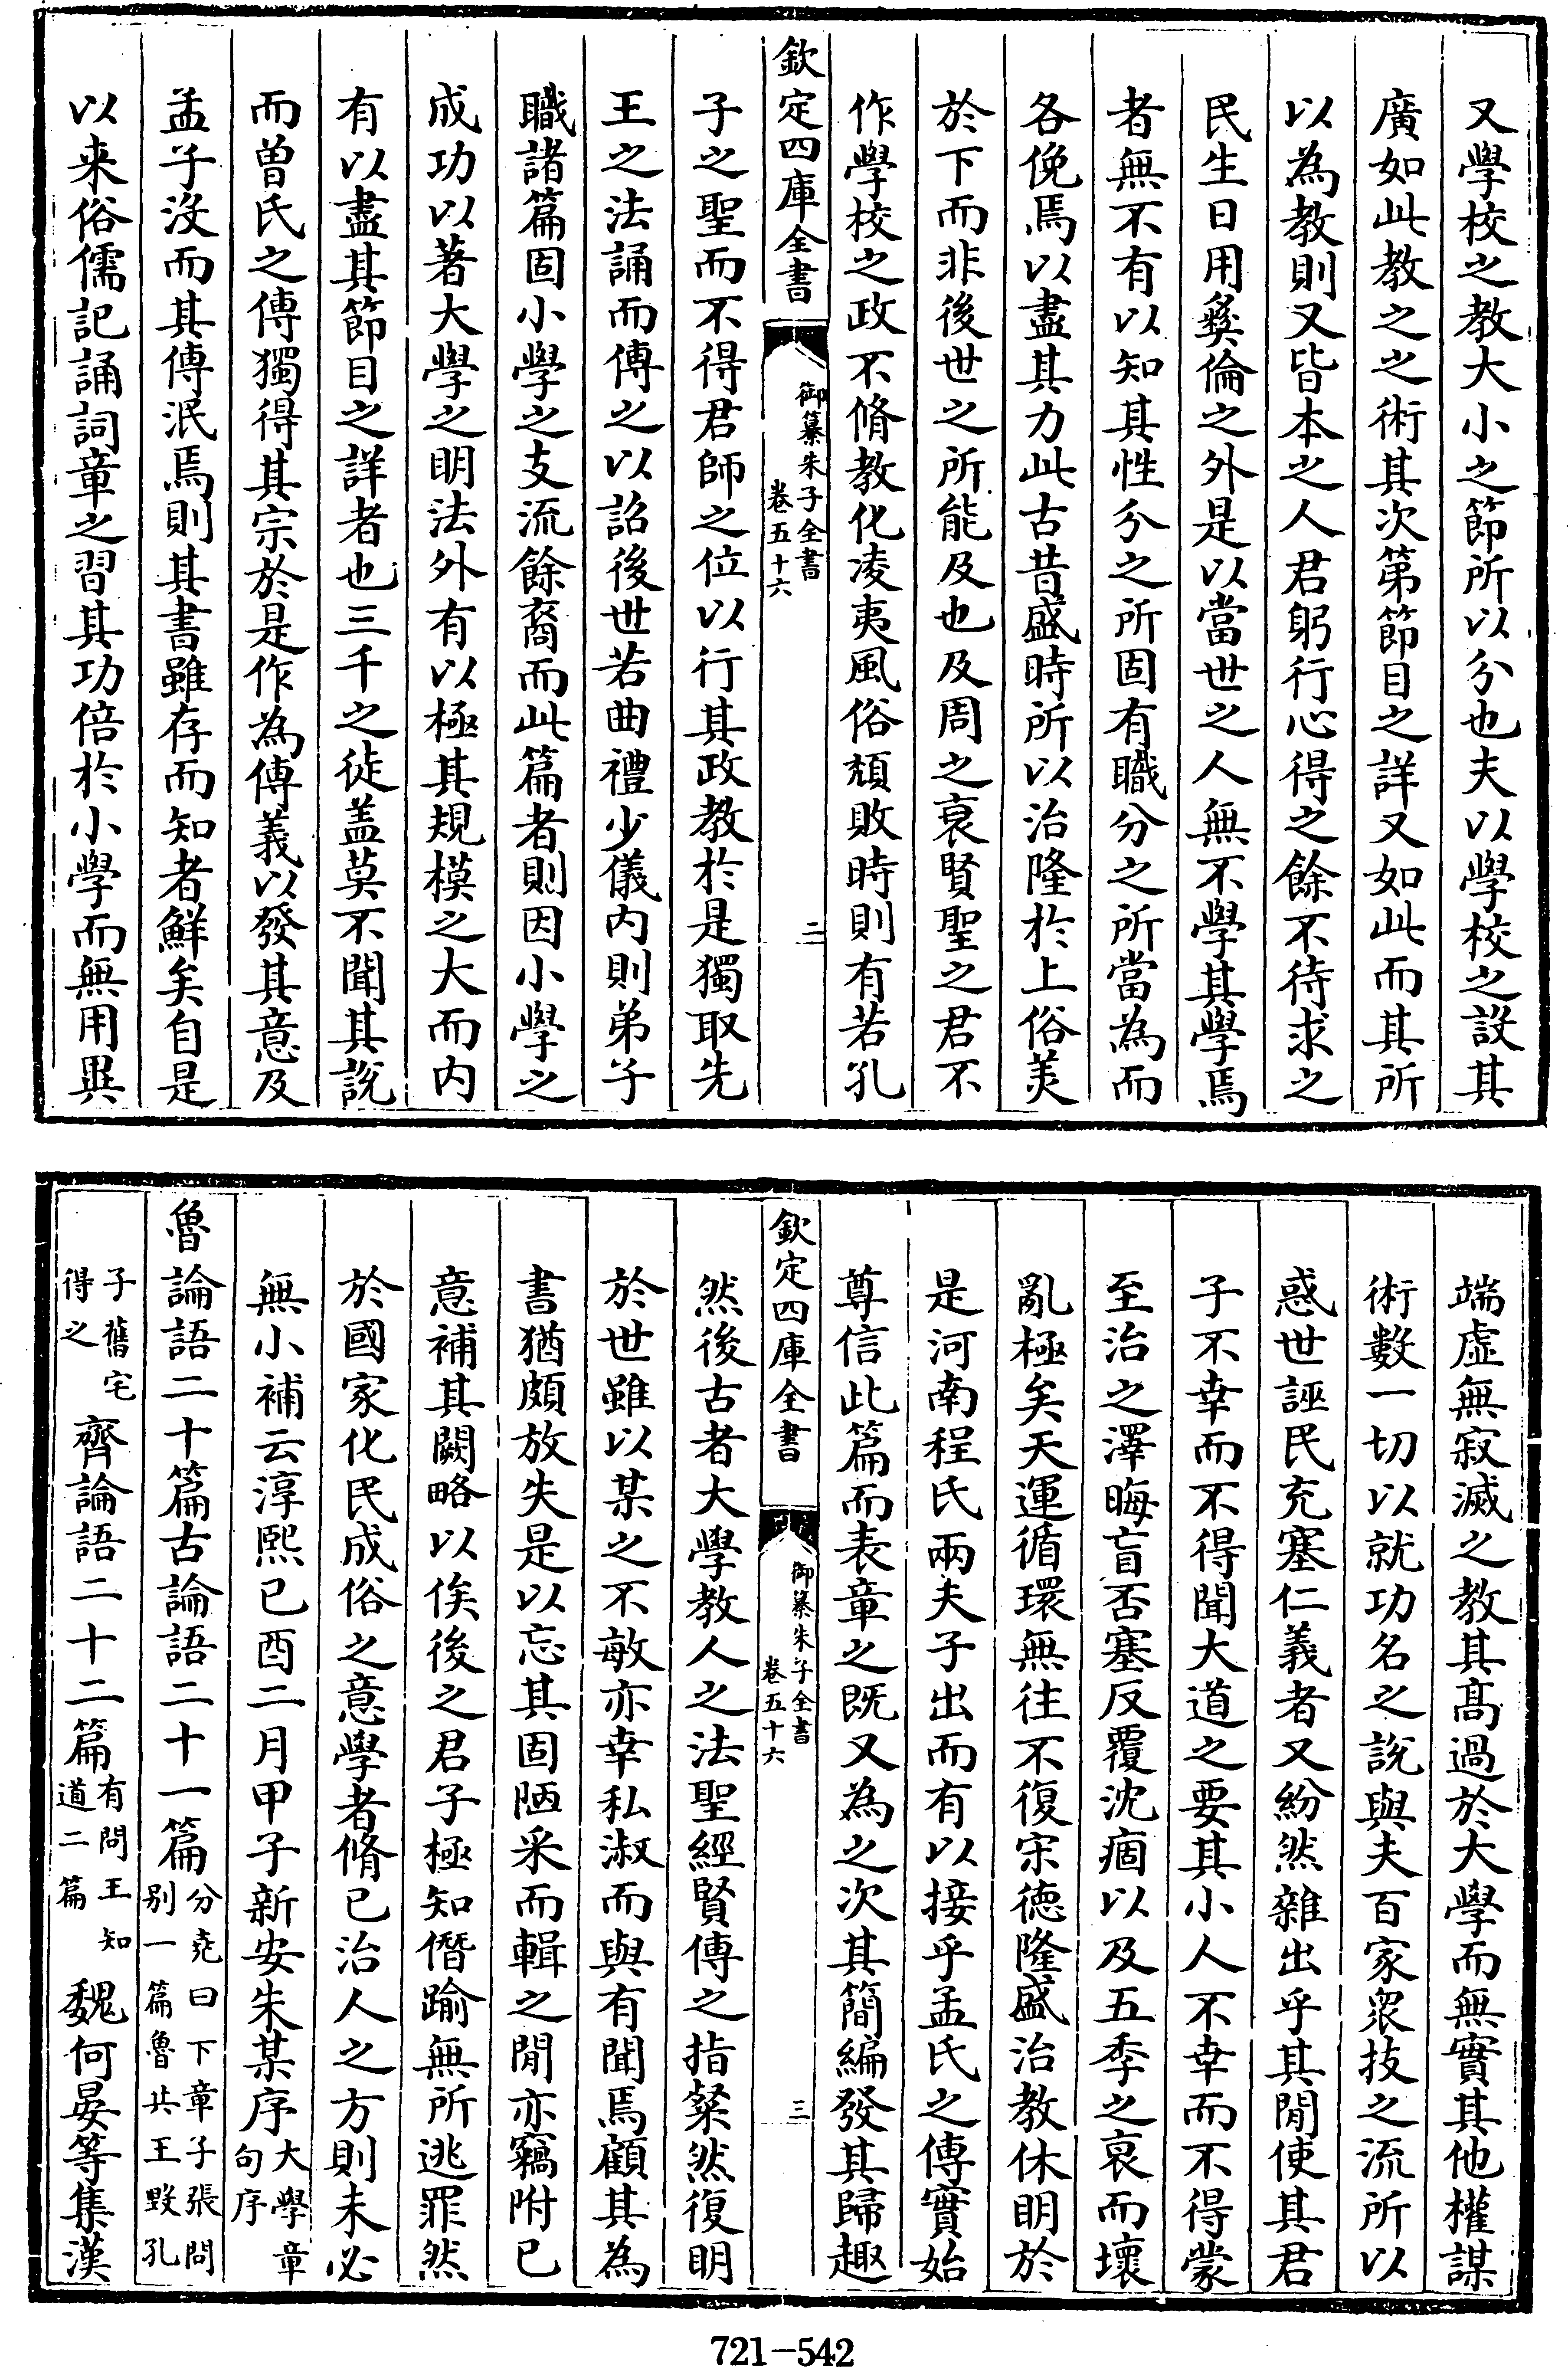 又學校之教大小之節所以分也夫以學校之設其
廣如此教之之術其次第節目之詳又如此而其所
以為教則又皆本之人君躬行心得之餘不待求之
民生日用彜倫之外是以當世之人無不學其學焉
者無不有以知其性分之所固有職分之所當為而
各俛焉以盡其力此古昔盛時所以治隆於上俗美
於下而非後世之所能及也及周之衰賢聖之君不
作學校之政不脩教化凌夷風俗頹敗時則有若孔
欽定四庫全書
御纂朱子全書
卷五十六
二
子之聖而不得君師之位以行其政教於是獨取先
王之法誦而傳之以詔後世若曲禮少儀内則弟子
職諸篇固小學之支流餘裔而此篇者則因小學之
成功以著大學之明法外有以極其規模之大而内
有以盡其節目之詳者也三千之徒蓋莫不聞其說
而曾氏之傳獨得其宗於是作為傳義以發其意及
孟子沒而其傳泯焉則其書雖存而知者鮮矣自是
以来俗儒記誦詞章之習其功倍於小學而無用異
端虛無寂滅之教其高過於大學而無實其他權謀
術數一切以就功名之說與夫百家衆技之流所以
惑世誣民充塞仁義者又紛然雜出乎其閒使其君
子不幸而不得聞大道之要其小人不幸而不得蒙
至治之澤晦盲否塞反覆沈痼以及五季之衰而壞
亂極矣天運循環無往不復宋德隆盛治教休明於
是河南程氏兩夫子出而有以接乎孟氏之傳實始
尊信此篇而表章之既又為之次其簡編發其歸趣
欽定四庫全書
御纂朱子全書
卷五十六
三
然後古者大學教人之法聖經賢傳之指粲然復明
於世雖以某之不敏亦幸私淑而與有聞焉顧其為
書猶頗放失是以忘其固陋采而輯之閒亦竊附已
意補其闕略以俟後之君子極知僭踰無所逃罪然
於國家化民成俗之意學者脩已治人之方則未必
無小補云淳熙已酉二月甲子新安朱某序大學章句序
魯論語二十篇古論語二十一篇分堯曰下章子張問别一篇魯共王毀孔
子舊宅得之齊論語二十二篇有問王知道二篇魏何晏等集漢
721-542